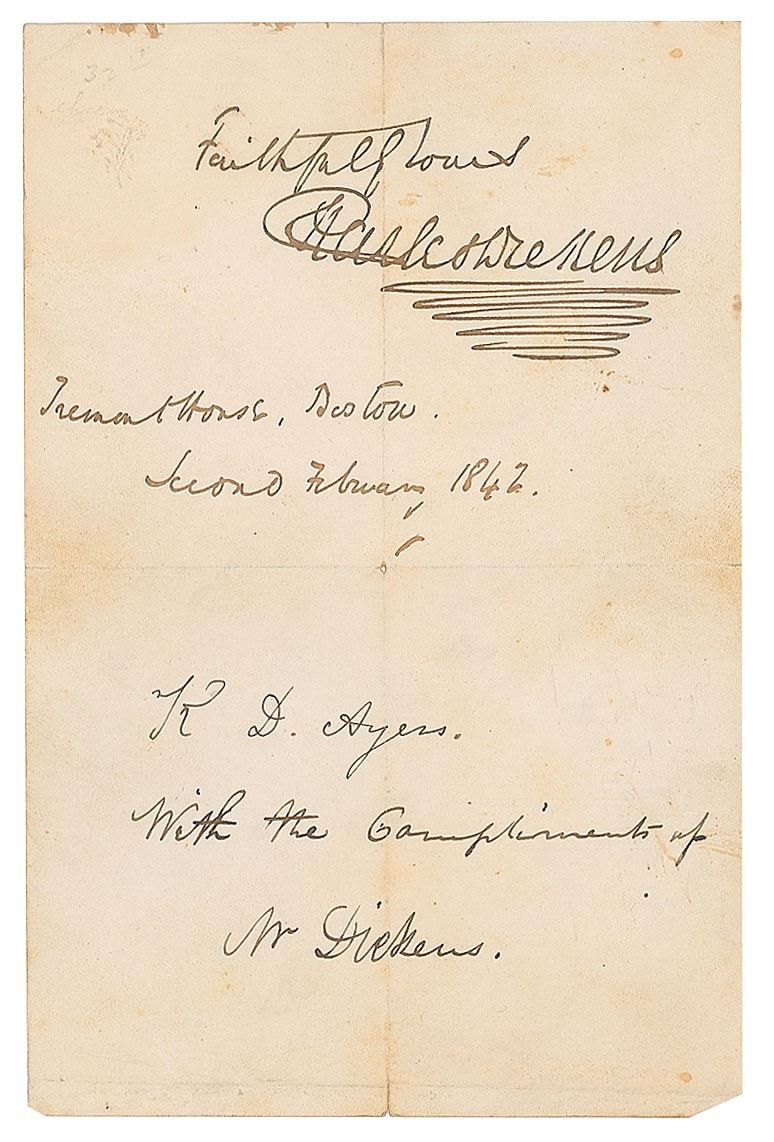 Faithfully Yours
Charles Dickens
Tremont House, Boston.
Second February 1842.
K D. Ayers.
With the Compliments of
Mr Dickens.